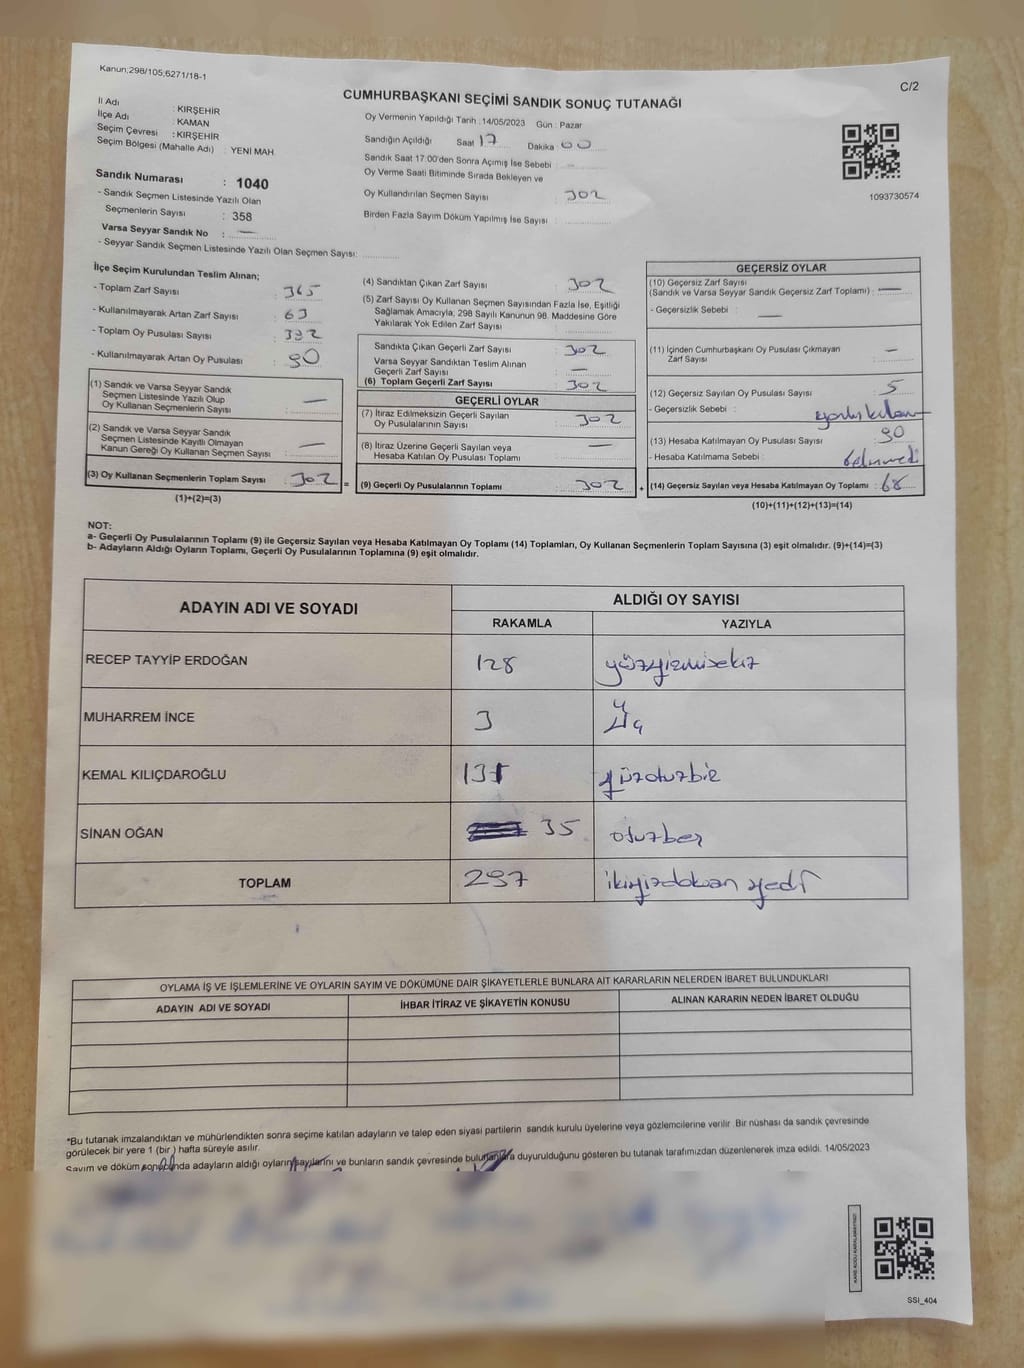 Kanun;298/105;6271/18-1
C/2
CUMHURBAŞKANI SEÇİMİ SANDIK SONUÇ TUTANAĞI
İl Adı : KIRŞEHİR
İlçe Adı : KAMAN
Seçim Çevresi : KIRŞEHİR
Seçim Bölgesi (Mahalle Adı) : YENİ MAH.
Sandık Numarası : 1040
- Sandık Seçmen Listesinde Yazılı Olan
Seçmenlerin Sayısı : 358
Varsa Seyyar Sandık No : —
- Seyyar Sandık Seçmen Listesinde Yazılı Olan Seçmen Sayısı:
Oy Vermenin Yapıldığı Tarih :14/05/2023 Gün : Pazar
Sandığın Açıldığı Saat 17 Dakika 00
Sandık Saat 17:00'den Sonra Açımış İse Sebebi : —
Oy Verme Saati Bitiminde Sırada Bekleyen ve
Oy Kullandırılan Seçmen Sayısı : 302
Birden Fazla Sayım Döküm Yapılmış İse Sayısı :
1093730574
İlçe Seçim Kurulundan Teslim Alınan;
- Toplam Zarf Sayısı : 365
- Kullanılmayarak Artan Zarf Sayısı : 63
- Toplam Oy Pusulası Sayısı : 392
- Kullanılmayarak Artan Oy Pusulası : 90
(1) Sandık ve Varsa Seyyar Sandık
Seçmen Listesinde Yazılı Olup
Oy Kullanan Seçmenlerin Sayısı : —
(2) Sandık ve Varsa Seyyar Sandık
Seçmen Listesinde Kayıtlı Olmayan
Kanun Gereği Oy Kullanan Seçmen Sayısı : —
(3) Oy Kullanan Seçmenlerin Toplam Sayısı : 302 =
(1)+(2)=(3)
(4) Sandıktan Çıkan Zarf Sayısı : 302
(5) Zarf Sayısı Oy Kullanan Seçmen Sayısından Fazla İse, Eşitliği
Sağlamak Amacıyla, 298 Sayılı Kanunun 98. Maddesine Göre
Yakılarak Yok Edilen Zarf Sayısı :
Sandıkta Çıkan Geçerli Zarf Sayısı : 302
Varsa Seyyar Sandıktan Teslim Alınan
Geçerli Zarf Sayısı : —
(6) Toplam Geçerli Zarf Sayısı : 302
GEÇERLİ OYLAR
(7) İtiraz Edilmeksizin Geçerli Sayılan
Oy Pusulalarının Sayısı : 302
(8) İtiraz Üzerine Geçerli Sayılan veya
Hesaba Katılan Oy Pusulası Toplamı : —
(9) Geçerli Oy Pusulalarının Toplamı : 302 +
GEÇERSİZ OYLAR
(10) Geçersiz Zarf Sayısı
(Sandık ve Varsa Seyyar Sandık Geçersiz Zarf Toplamı) : —
- Geçersizlik Sebebi : —
(11) İçinden Cumhurbaşkanı Oy Pusulası Çıkmayan
Zarf Sayısı : —
(12) Geçersiz Sayılan Oy Pusulası Sayısı : 5
- Geçersizlik Sebebi :
(13) Hesaba Katılmayan Oy Pusulası Sayısı : 90
- Hesaba Katılmama Sebebi :
(14) Geçersiz Sayılan veya Hesaba Katılmayan Oy Toplamı : 68
(10)+(11)+(12)+(13)=(14)
NOT:
a- Geçerli Oy Pusulasının Toplamı (9) ile Geçersiz Sayılan veya Hesaba Katılmayan Oy Toplamı (14) Toplamları, Oy Kullanan Seçmenlerin Toplam Sayısına (3) eşit olmalıdır. (9)+(14)=(3)
b- Adayların Aldığı Oyların Toplamı, Geçerli Oy Pusulalarının Toplamına (9) eşit olmalıdır.
ADAYIN ADI VE SOYADI ALDIĞI OY SAYISI
RAKAMLA YAZIYLA
RECEP TAYYİP ERDOĞAN 128 yüzyirmisekiz
MUHARREM İNCE 3 üç
KEMAL KILIÇDAROĞLU 131 yüzotuzbir
SİNAN OĞAN 35 otuzbeş
TOPLAM 297 ikiyüzdoksan yedi
OYLAMA İŞ VE İŞLEMLERİNE VE OYLARIN SAYIM VE DÖKÜMÜNE DAİR ŞİKAYETLERLE BUNLARA AİT KARARLARIN NELERDEN İBARET BULUNDUKLARI
ADAYIN ADI VE SOYADI İHBAR İTİRAZ VE ŞİKAYETİN KONUSU ALINAN KARARIN NEDEN İBARET OLDUĞU
*Bu tutanak imzalandıktan ve mühürlendikten sonra seçime katılan adayların ve talep eden siyasi partilerin sandık kurulu üyelerine veya gözlemcilerine verilir. Bir nüshası da sandık çevresinde
görülecek bir yere 1 (bir) hafta süreyle asılır.
Sayım ve döküm sonunda adayların aldığı oyların sayılarını ve bunların sandık çevresinde bulunanlara duyurulduğunu gösteren bu tutanak tarafımızdan düzenlenerek imza edildi. 14/05/2023
SSİ_404